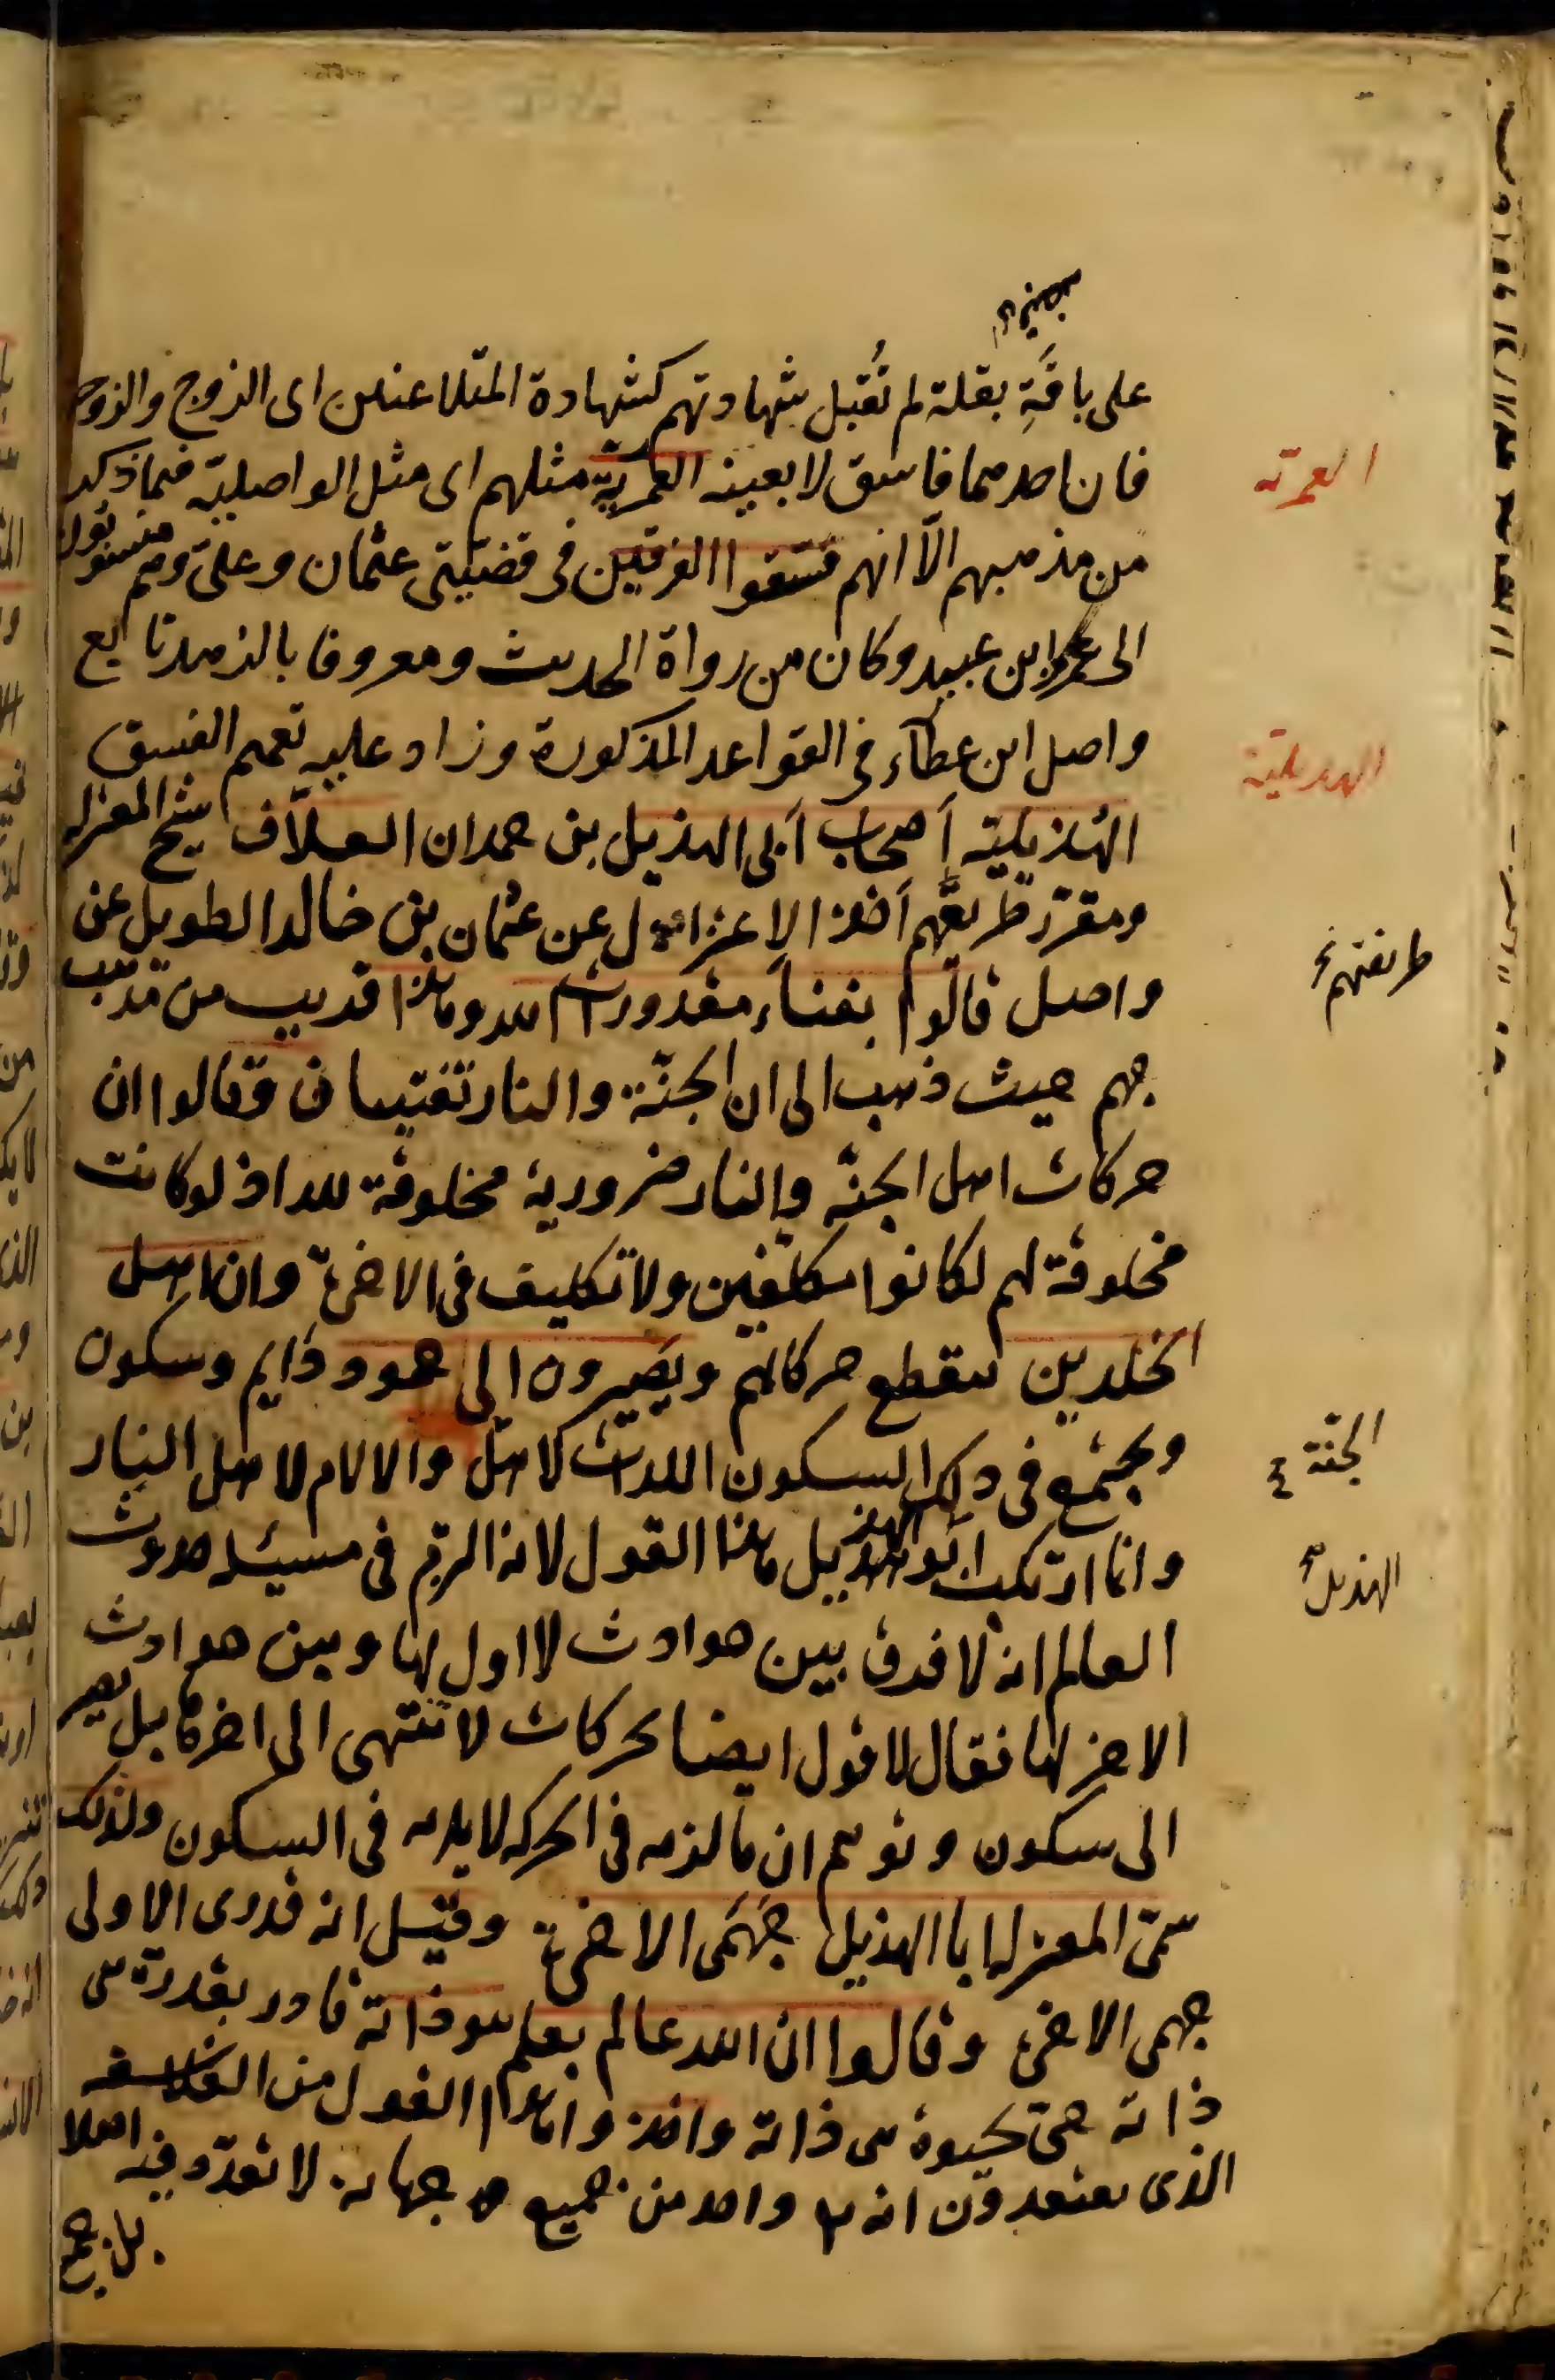 على باقة بقلة لم تقبل شهادتهم كشهادة المتلاعنين اى الزوج والزوج
فان احدهما فاسق لا بعينه العمرية مثلهم اى مثل الواصلية فيما ذكر
العمرية
من مذهبهم الّا انهم فسّقوا الفرقين فى قضيتى عثمان وعلى وهم منسوبون
الى عمرو ابن عبيد وكان من رواة الحديث ومعروفا بالزهد تابع
واصل ابن عطآء فى القواعد المذكورة وزاد عليه تعمم الفسق
الهديلية
الهُذيلية أصحاب أبى الهذيل بن حمدان العلّاف شيخ المعتزلة
ومقرّر طريقهم أخذ الاعتزال عن عثمان بن خالد الطويل عن
طريقتهم
واصل قالوا بفناء مقدورات الله وهذا قريب من مذهب
جهم حيث ذهب الى ان الجنّة والنار تفنيان وقالوا ان
حركات اهل الجنّة والنار ضرورية مخلوقة لله اذ لو كانت
مخلوقة لهم لكانوا مكلّفين ولا تكليف فى الاخرة وان اهل
الخلدين تنقطع حركاتهم ويَصيرون الى جمود دايم وسكون
ويجتمع فى ذلك السكون اللذات لاهل والالام لاهل النار
الجنّة
وانما ارتكب ابو الهذيل هذا القول لانه التزم فى مسئلة حدوث
الهذيل
العالم انه لا فرق بين حوادث لا اول لها وبين حوادث
لا اخر لها فقال لا اقول ايضا بحركات لا تنتهى الى اخرها بل يصير
الى سكون وتوهم ان ما لزمه فى الحركة لا يلزمه فى السكون ولذلك
سمّى المعتزلة ابا الهذيل جَهمَى الاخرة وقيل انه قدرى الاولى
جهمى الاخرة وقالوا ان الله عالم بعلم هو ذاته قادر بقدرة هى
ذاته حىّ بحيوة هى ذاته واخذوا هذا القول من الفلاسفة
الذى يعتقدون انه تعالى واحد من جميع جهاته لا تعدّد فيه اصلا
بل جميع